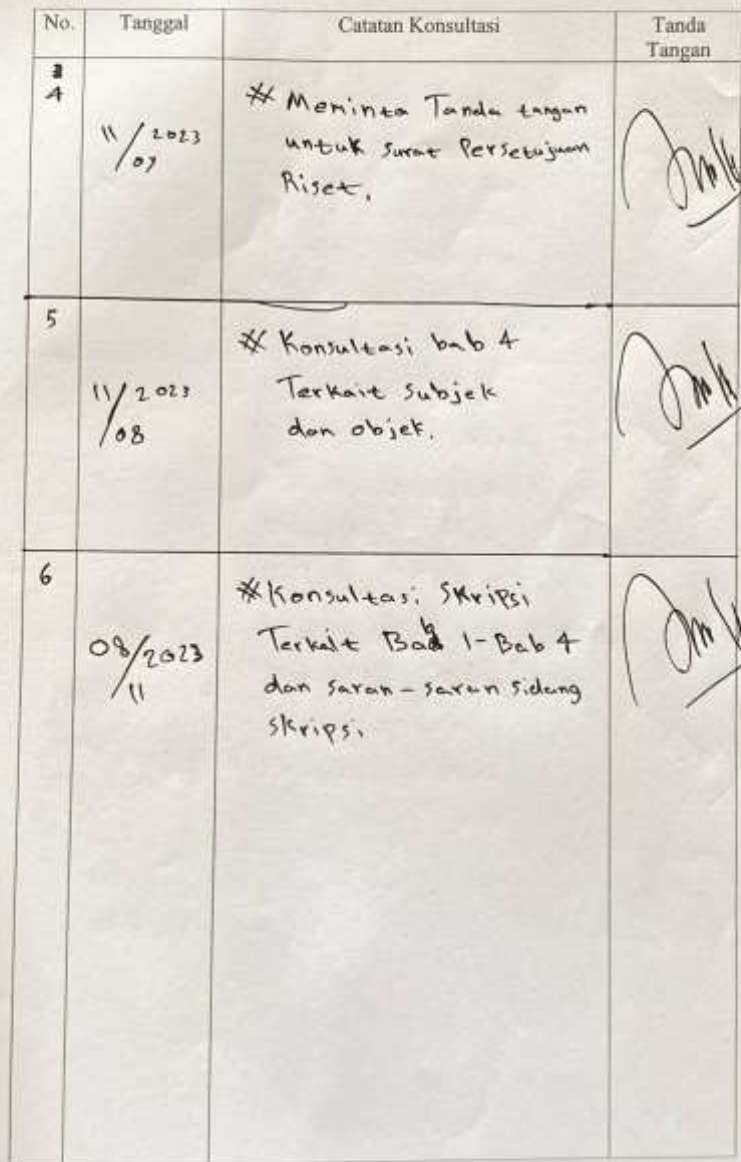 No. Tanggal Catatan Konsultasi Tanda
Tangan
4
11/2023
/07
# Meminta Tanda tangan
untuk Surat Persetujuan
Riset.
5
11/2023
/08
# Konsultasi bab 4
Terkait Subjek
dan objek.
6
08/2023
/11
# Konsultasi Skripsi
Terkait Bab 1-Bab 4
dan saran-saran sidang
skripsi